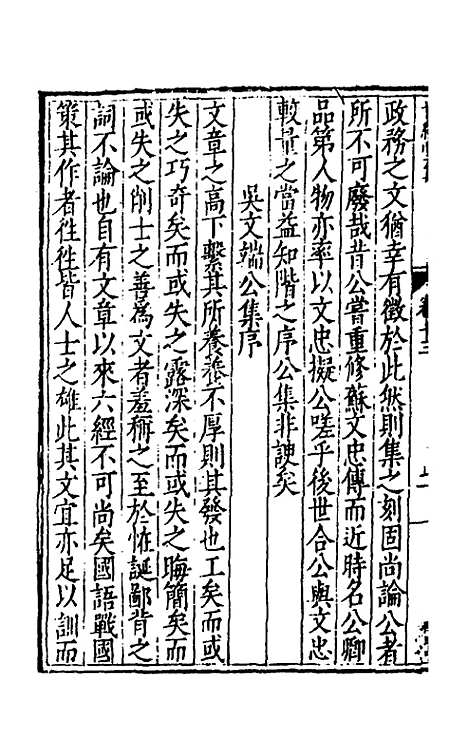 政務之文猶幸有徵於此然則集之刻固尚論公者
所不可廢哉昔公嘗重修蘇文忠傳而近時名公卿
品第人物亦率以文忠擬公嗟乎後世合公與文忠
較量之當益知階之序公集非諛矣
吳文端公集序
文章之高下繫其所養養不厚則其發也工矣而或
失之巧奇矣而或失之露深矣而或失之晦簡矣而
或失之削士之善爲文者羞稱之至於恠誕鄙背之
詞不論也自有文章以來六經不可尚矣國語戰國
策其作者徃徃皆人士之雄此其文宜亦足以訓而